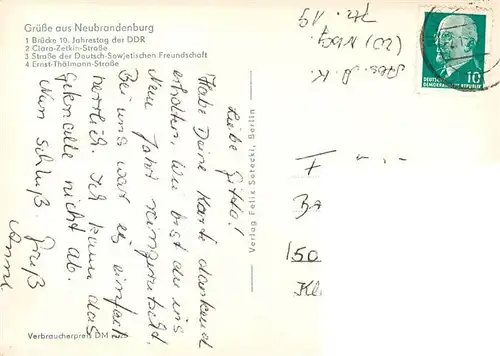 Grüße aus Neubrandenburg
1 Brücke 10. Jahrestag der DDR
2 Clara-Zetkin-Straße
3 Straße der Deutsch-Sowjetischen Freundschaft
4 Ernst-Thälmann-Straße
Liebe Gitta!
Habe Deine Karte dankend
erhalten, wie bist du ins
Neue Jahr reingerutscht.
Bei uns war es einfach
herrlich. Ich kann das
Geknalle nicht ab.
Nun Schluß. Gruß
Anne
Verbraucherpreis DM
Verlag Felix Setecki, Berlin
Abs. A. K
(20) Nbg.
19
DEUTSCHE
DEMOKRATISCHE REPUBLIK
10
F
150